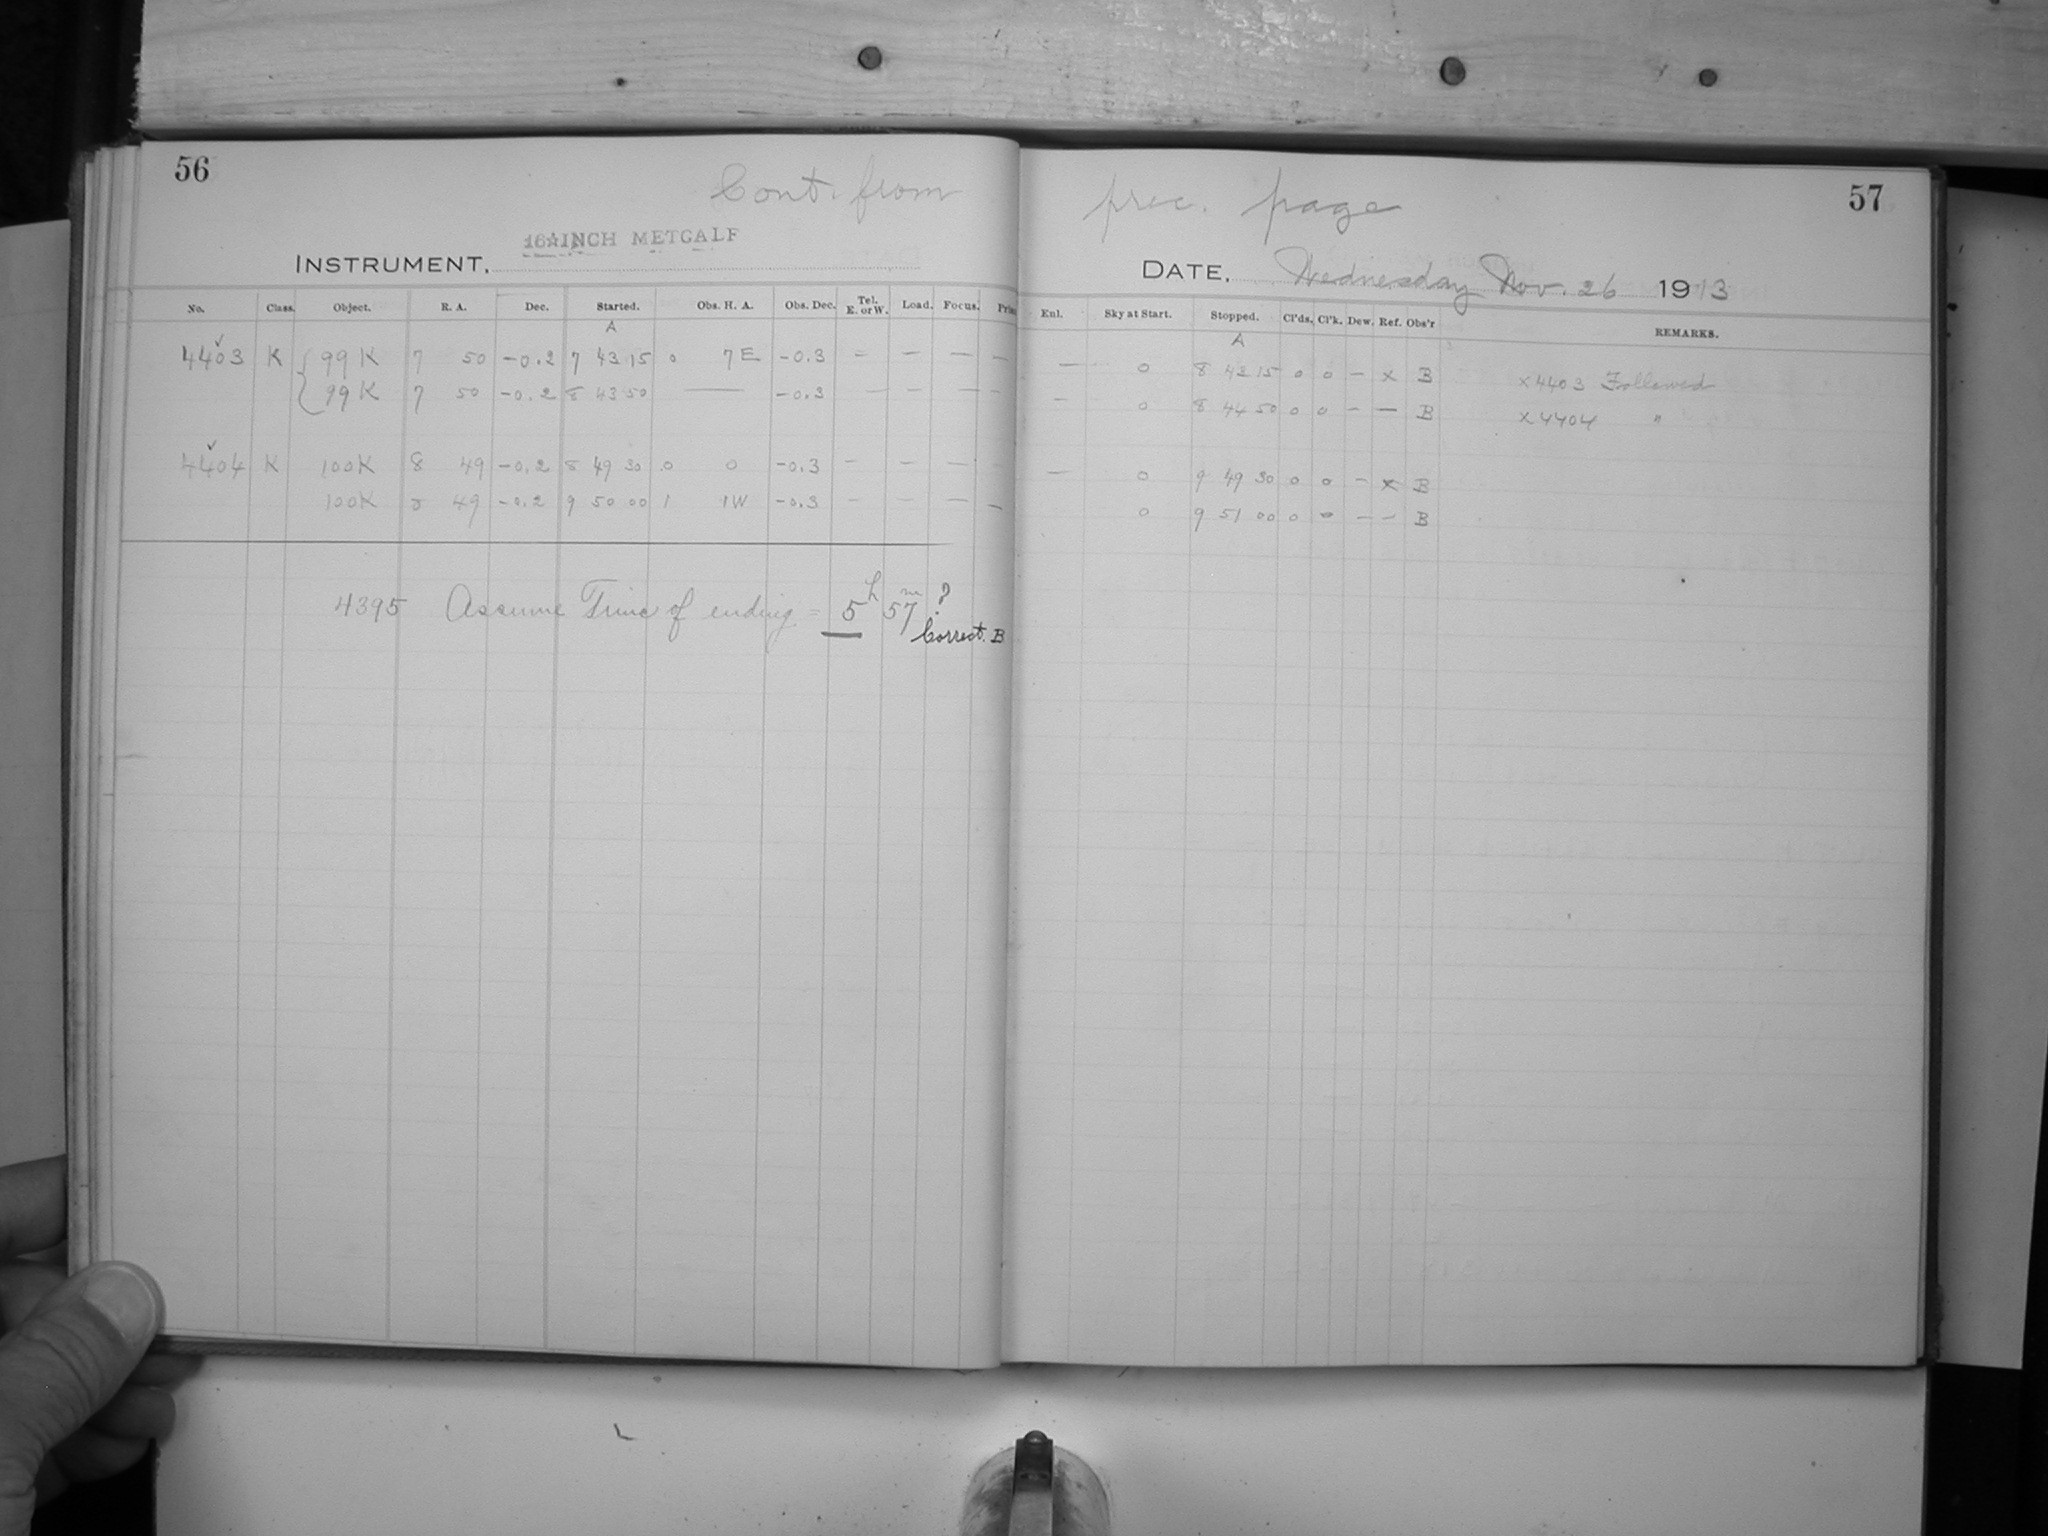 56
Cont. from prec. page
57
16 INCH METCALF
INSTRUMENT,
DATE, Wednesday Nov. 26 1913
No. Class. Object. R. A. Dec. Started. Obs. H. A. Obs. Dec. Tel. E. or W. Load. Focus. Enl. Sky at Start. Stopped. Cl'ds. Cl'k. Dew. Ref. Obs'r REMARKS.
A A
4403 K 99 K 7 50 -0.2 7 43 15 0 7 E -0.3 - - - - - 0 8 43 15 0 0 - x B x 4403 Followed
99 K 7 50 -0.2 8 43 50 — -0.3 - - - - - 0 8 44 50 0 0 - - B x 4404 "
4404 K 100K 8 49 -0.2 8 49 30 0 0 -0.3 - - - - - 0 9 49 30 0 0 - x B
100K 8 49 -0.2 9 50 00 1 1W -0.3 - - - - 0 9 51 00 0 0 - - B
4395 Assume Time of ending = 5h 57m ?
Correct. B